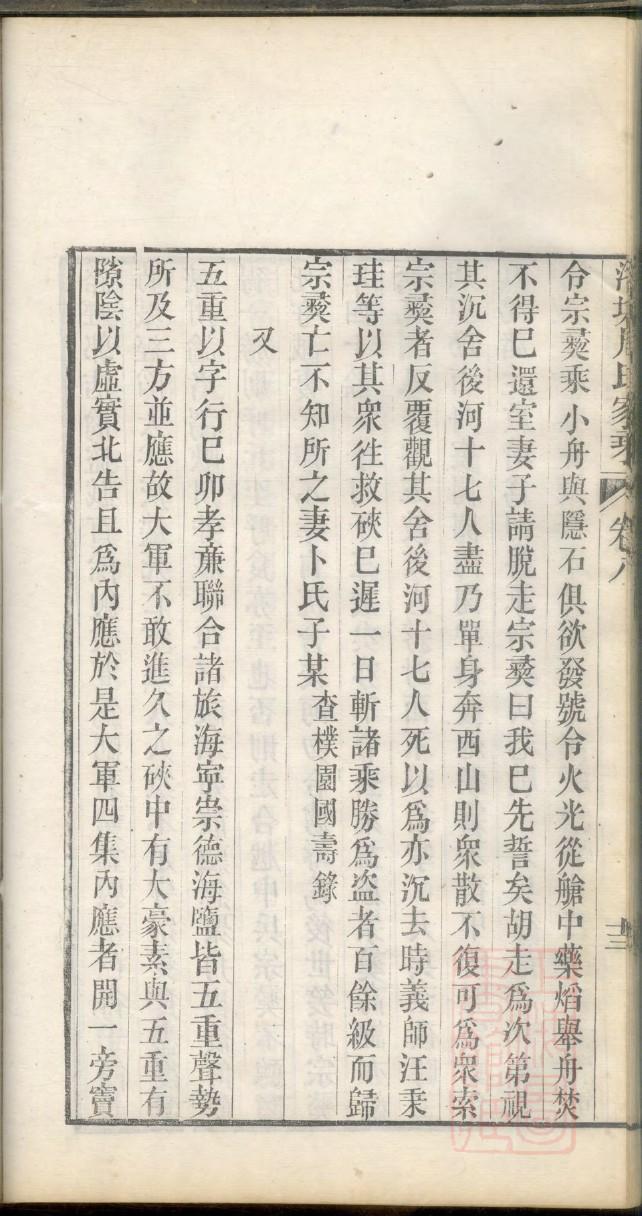 令宗彜乘小舟與隱石俱欲發號令火光從艙中藥熖舉舟焚
不得巳還室妻子請脫走宗彜曰我巳先誓矣胡走爲次第視
其沉舍後河十七人盡乃單身奔西山則衆散不復可爲衆索
宗彜者反覆觀其舍後河十七人死以爲亦沉去時義師汪秉
珪等以其衆徃救硤巳遲一日斬諸乘勝爲盗者百餘級而歸
宗彜亡不知所之妻卜氏子某 查樸園國壽錄
又
五重以字行巳卯孝亷聯合諸旅海寧崇德海鹽皆五重聲勢
所及三方並應故大軍不敢進久之硤中有大豪素與五重有
隙陰以虛實北告且爲內應於是大軍四集內應者開一旁竇